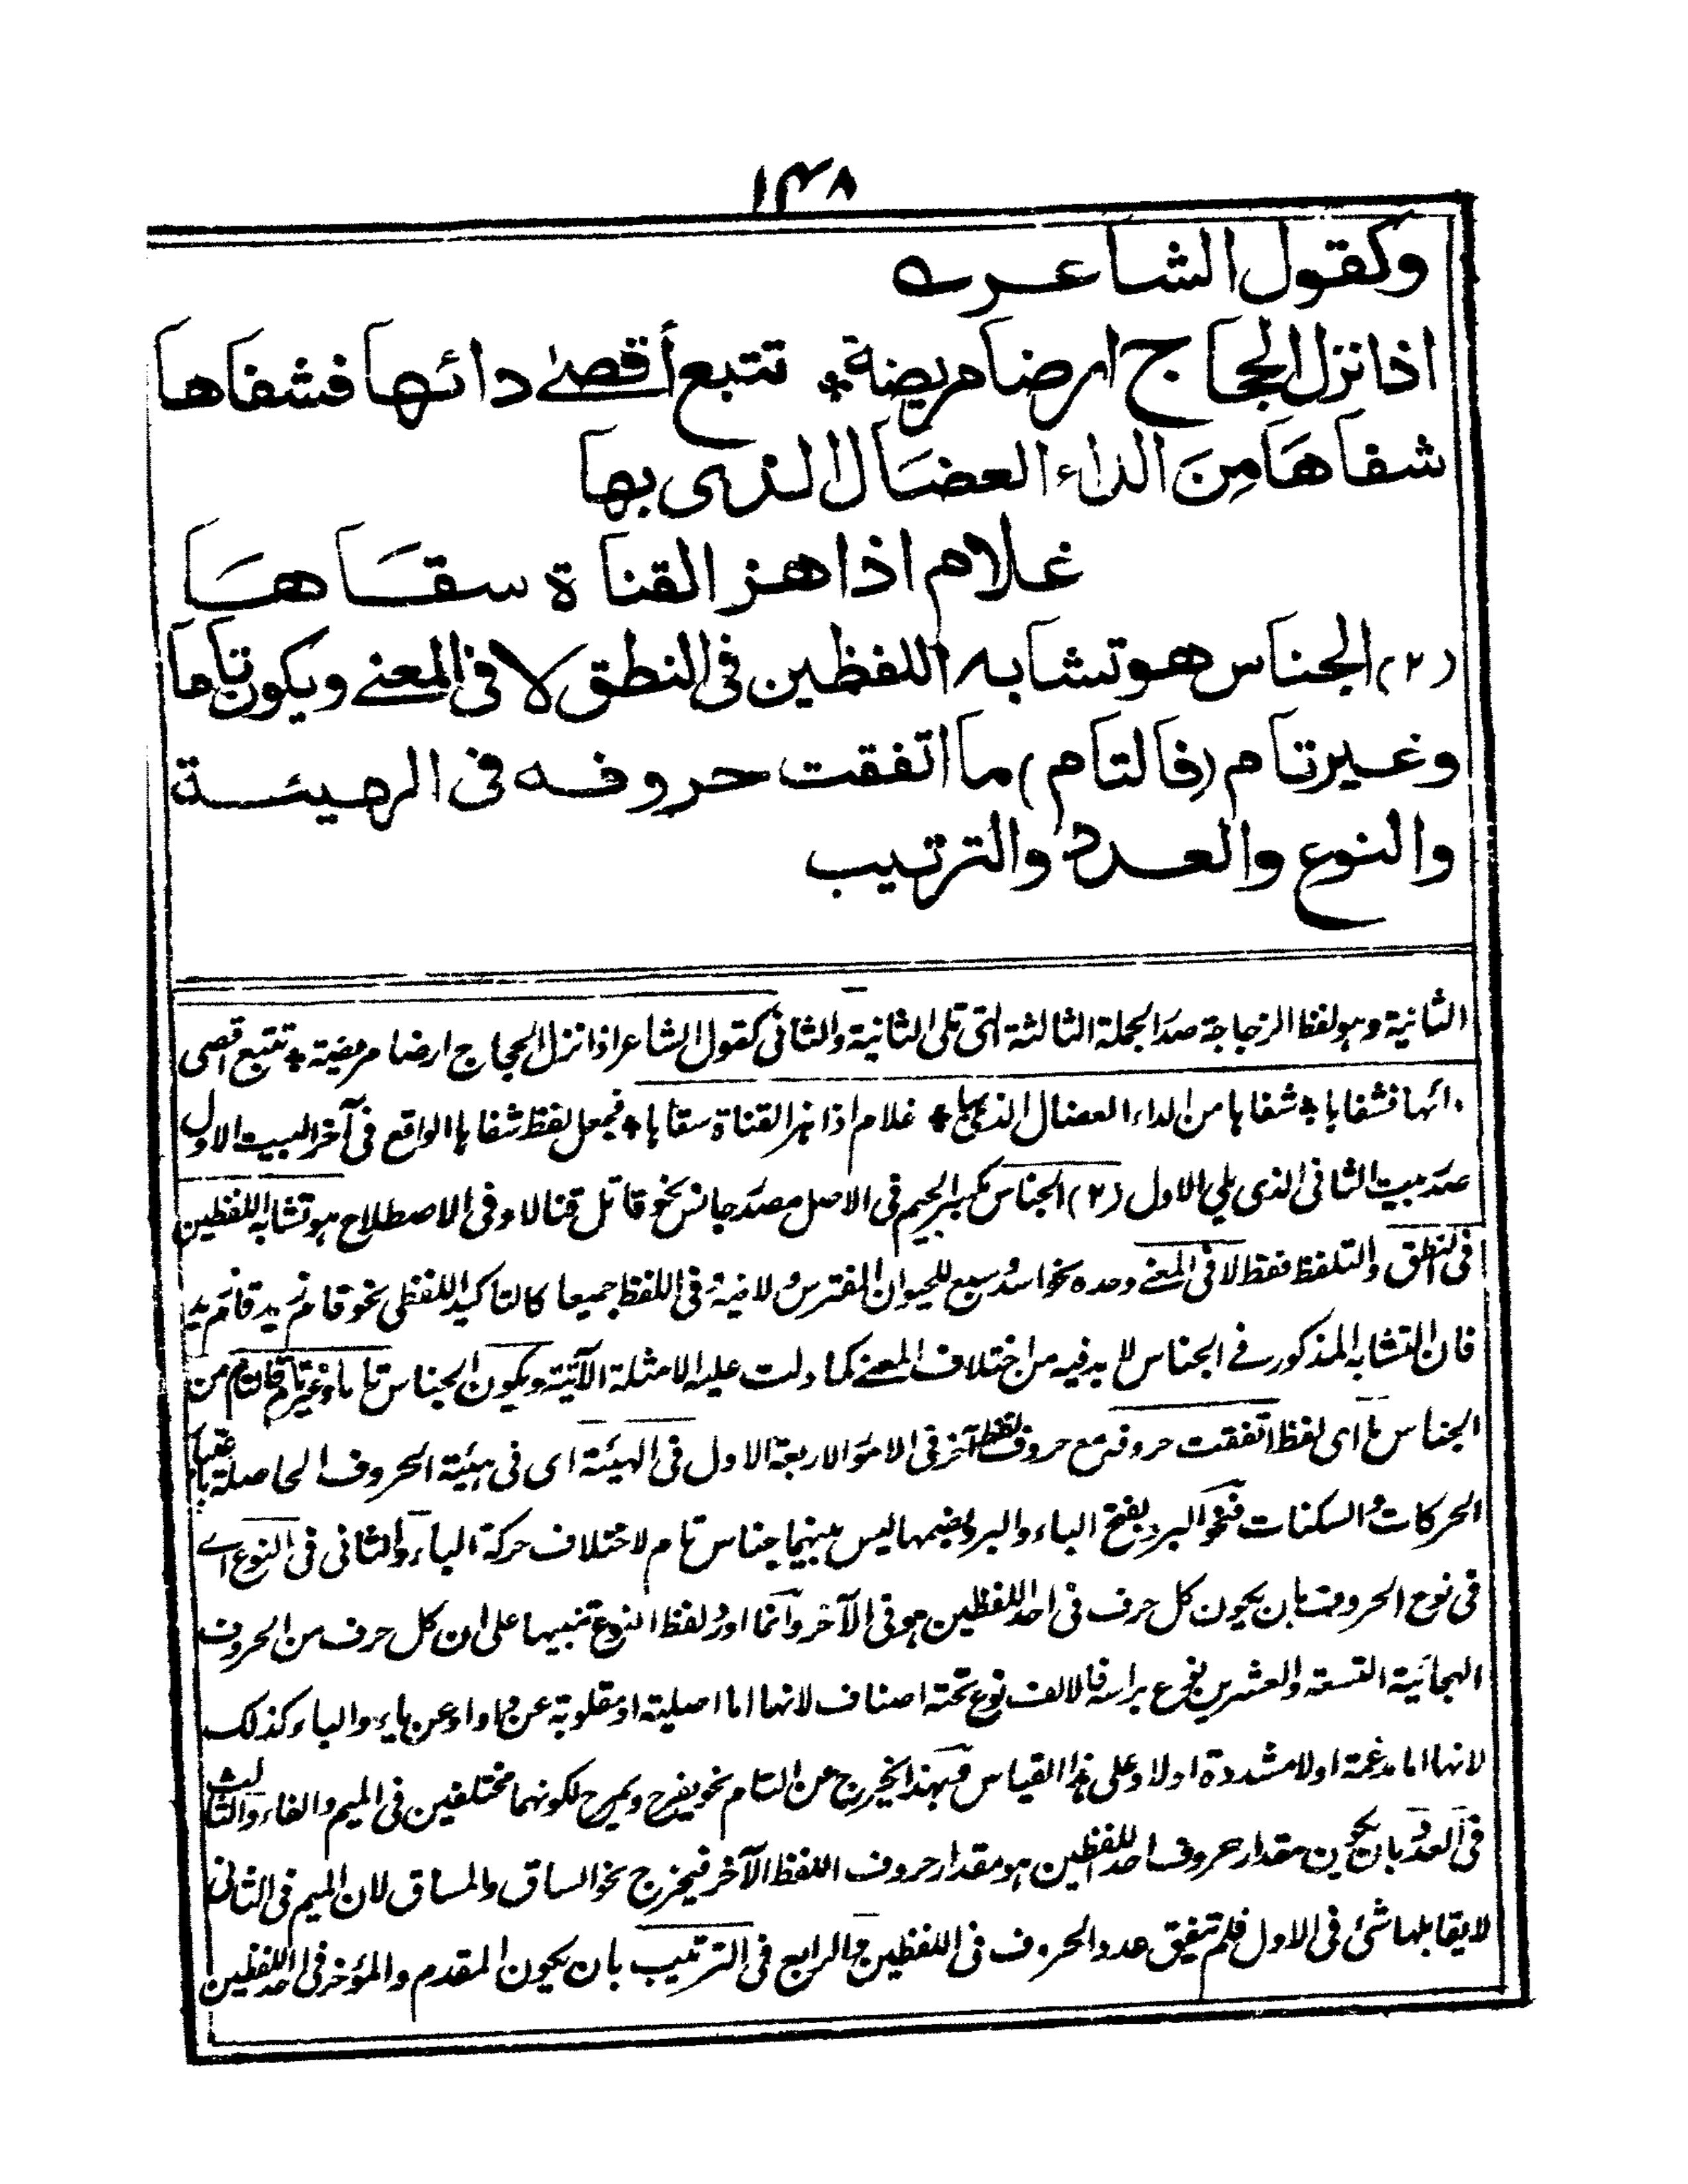 ١٣٨
وكقول الشاعر
اذا نزل الحجاج ارضا مريضة * تتبع أقصى دائها فشفاها
شفاهَا مِنَ الداء العضَال الذى بها
غلام اذا هز القناة سقَاهَا
(٢) الجناس هو تشابه اللفظين فى النطق لا فى المعنى ويكون تاما
وغير تام (فالتام) ما اتفقت حروفه فى الهيئة
والنوع والعدد والترتيب
الثانية وهو لفظ الزجاجة صدر الجملة الثالثة التى تلى الثانية والثانى كقول الشاعر اذا نزل الحجاج ارضا مريضة * تتبع اقصى
دائها فشفاها * شفاها من الداء العضال الذى بها * غلام اذا هز القناة سقاها * فجعل لفظ شفاها الواقع فى آخر البيت الاول
صدر بيت الثانى الذى يلى الاول (٢) الجناس بكسر الجيم فى الاصل مصدر جانس نحو قاتل قتالا وفى الاصطلاح هو تشابه اللفظين
فى النطق والتلفظ فقط لا فى المعنى وحده نحو اسد وسبع للحيوان المفترس ولا فيه وفى اللفظ جميعا كالتاكيد اللفظى نحو قام زيد قام زيد
فان التشابه المذكور فى الجناس لا بد فيه من اختلاف المعنى كما دلت عليه الامثلة الآتية ويكون الجناس تاما وغير تام فالتام من
الجناس ما اى لفظ اتفقت حروفه مع حروف لفظ آخر فى الامور الاربعة الاول فى الهيئة اى فى هيئة الحروف الحاصلة باعتبار
الحركات والسكنات فنحو البرد بفتح الباء والبرد بضمها ليس بينهما جناس تام لاختلاف حركة الباء والثانى فى النوع اے
فى نوع الحروف بان يكون كل حرف فى احد اللفظين هو فى الآخر وانما اورد لفظ النوع تنبيها على ان كل حرف من الحروف
الهجائية التسعة والعشرين نوع براسه فالالف نوع تحته اصناف لانها اما اصلية او مقلوبة عن واو او عن ياء والباء كذلك
لانها اما مدغمة اولا مشددة اولا وعلى هذا القياس فبهذا يخرج عن التام نحو يفرح ويمرح لكونهما مختلفين فى الميم والفاء والثالث
فى العدد بان يكون مقدار حروف احد اللفظين هو مقدار حروف اللفظ الآخر فيخرج نحو الساق والمساق لان الميم فى الثانى
لا يقابلها شئ فى الاول فلم تيفق عدد الحروف فى اللفظين والرابع فى الترتيب بان يكون المقدم والمؤخر فى احد اللفظين